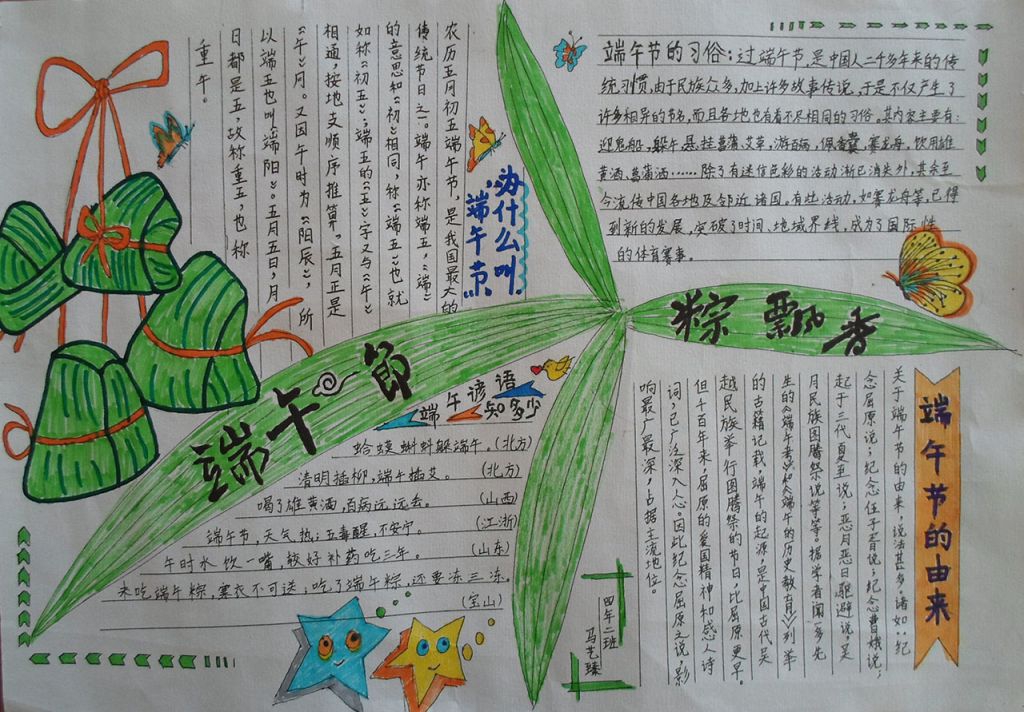 端午节
粽飘香
办什么叫
“端午节”
农历五月初五端午节，是我国最大的
传统节日之一。端午亦称端五，“端”
的意思和“初”相同，称“端五”也就
如称“初五”；端五的“五”字又与“午”
相通，按地支顺序推算，五月正是
“午”月。又因午时为“阳辰”，所
以端五也叫“端阳”。五月五日，月
日都是五，故称重五，也称
重午。
端午节的习俗：过端午节，是中国人二千多年来的传
统习惯，由于民族众多，加上许多故事传说，于是不仅产生了
许多相异的节名，而且各地也有着不尽相同的习俗。其内容主要有：
迎鬼船，躲午，悬挂菖蒲、艾草，游百病，佩香囊，赛龙舟，饮用雄
黄酒、菖蒲酒……除了有迷信色彩的活动渐已消失外，其余至
今流传中国各地及邻近诸国，有些活动，如赛龙舟等，已得
到新的发展，突破了时间、地域界线，成为了国际性
的体育赛事。
端午谚语
知多少
蛤蟆蝌蚪躲端午。(北方)
清明插柳，端午插艾。(北方)
喝了雄黄酒，百病远远去。(山西)
端午节，天气热；五毒醒，不安宁。(江浙)
午时水饮一嘴，较好补药吃三年。(山东)
未吃端午粽，寒衣不可送；吃了端午粽，还要冻三冻。
(宝山)
端午节的由来
关于端午节的由来，说法甚多，诸如：纪
念屈原说；纪念伍子胥说；纪念曹娥说；
起于三代夏至说；恶月恶日驱避说，吴
月民族图腾祭说等等。据学者闻一多先
生的《端午考》和《端午的历史教育》列举
的古籍记载，端午的起源，是中国古代吴
越民族举行图腾祭的节日，比屈原更早。
但千百年来，屈原的爱国精神和感人诗
词，已广泛深入人心。因此，纪念屈原之说，影
响最广最深，占据主流地位。
四年二班
马艺臻